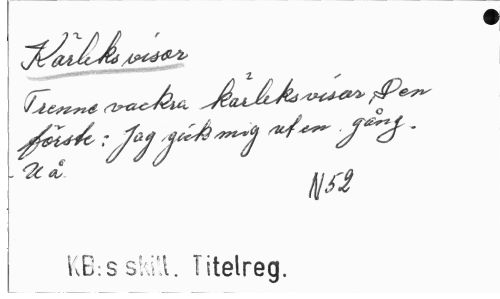 Kärleksvisor
Trenne vackra kärleksvisor, Den
förste: Jag gick mig ut en gång.
U å.
N52
KB:s skill. Titelreg.